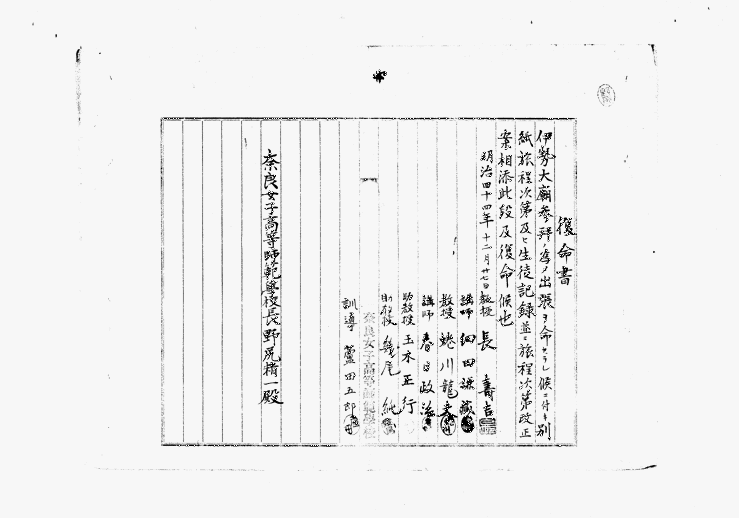 復命書
伊勢大廟参拝ノ為メ出張ヲ命セラレ候ニ付キ別
紙旅程次第及ヒ生徒記録並ニ旅程次第改正
案相添此段及復命候也
明治四十四年十二月廿七日 教授 長壽吉
講師 細田謙蔵
教授 蜷川龍夫
講師 春日政治
助教授 玉木正行
助教授 幾尾純
奈良女子高等師範学校
訓導 蘆田五郎
奈良女子高等師範學校長野尻精一殿